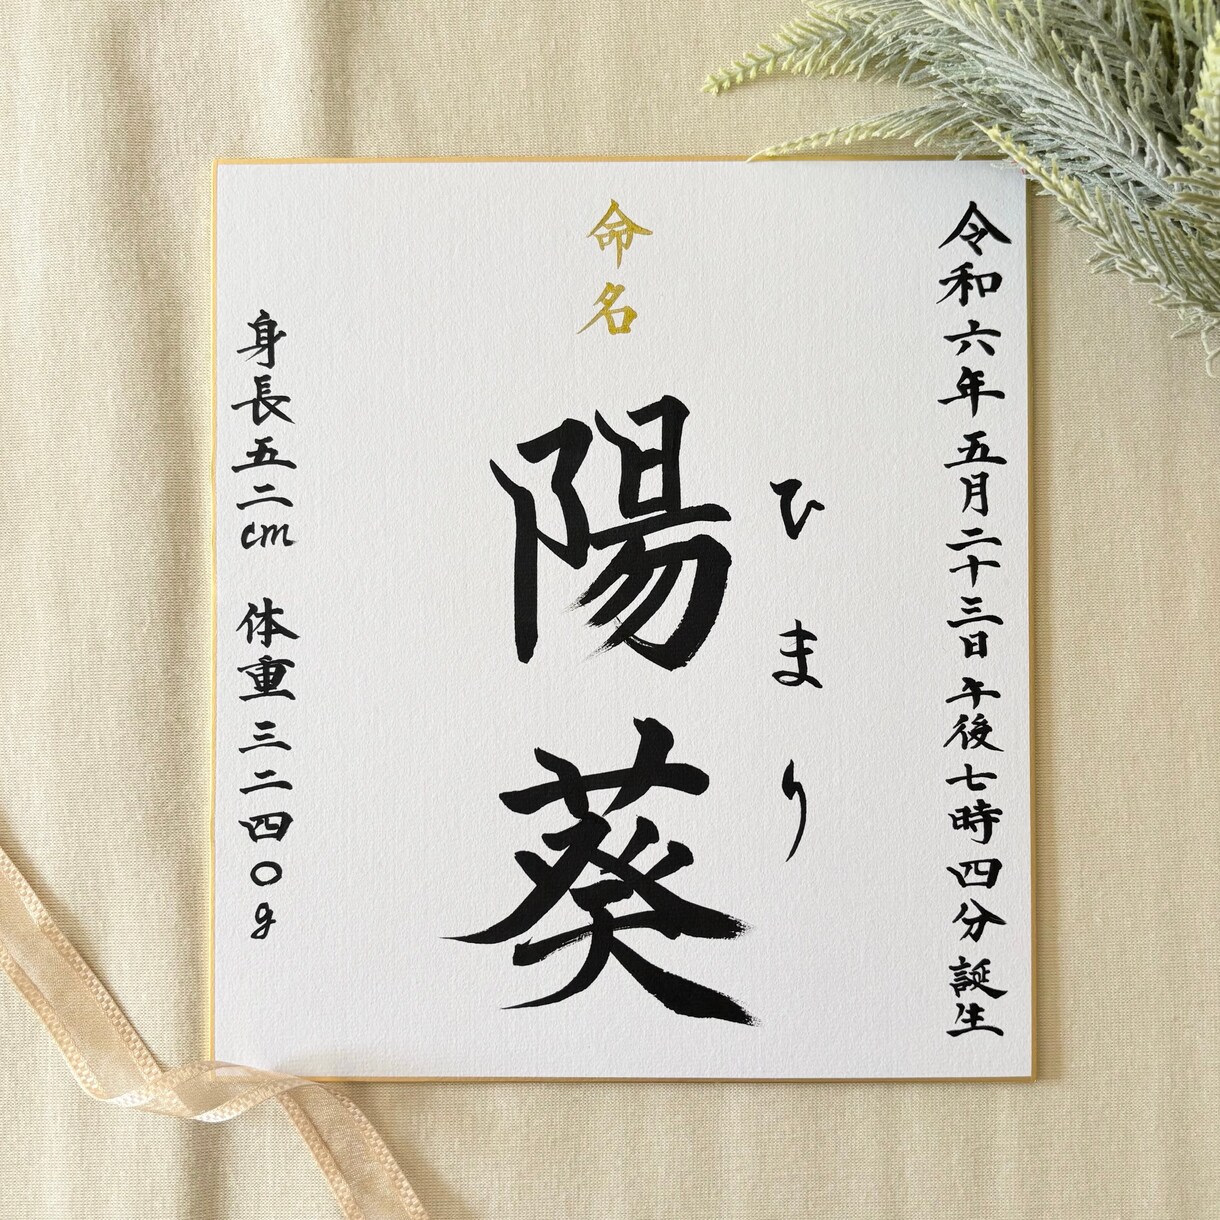 令和六年五月二十三日午後七時四分誕生
命名
ひまり
陽葵
身長五二cm 体重三二四〇g